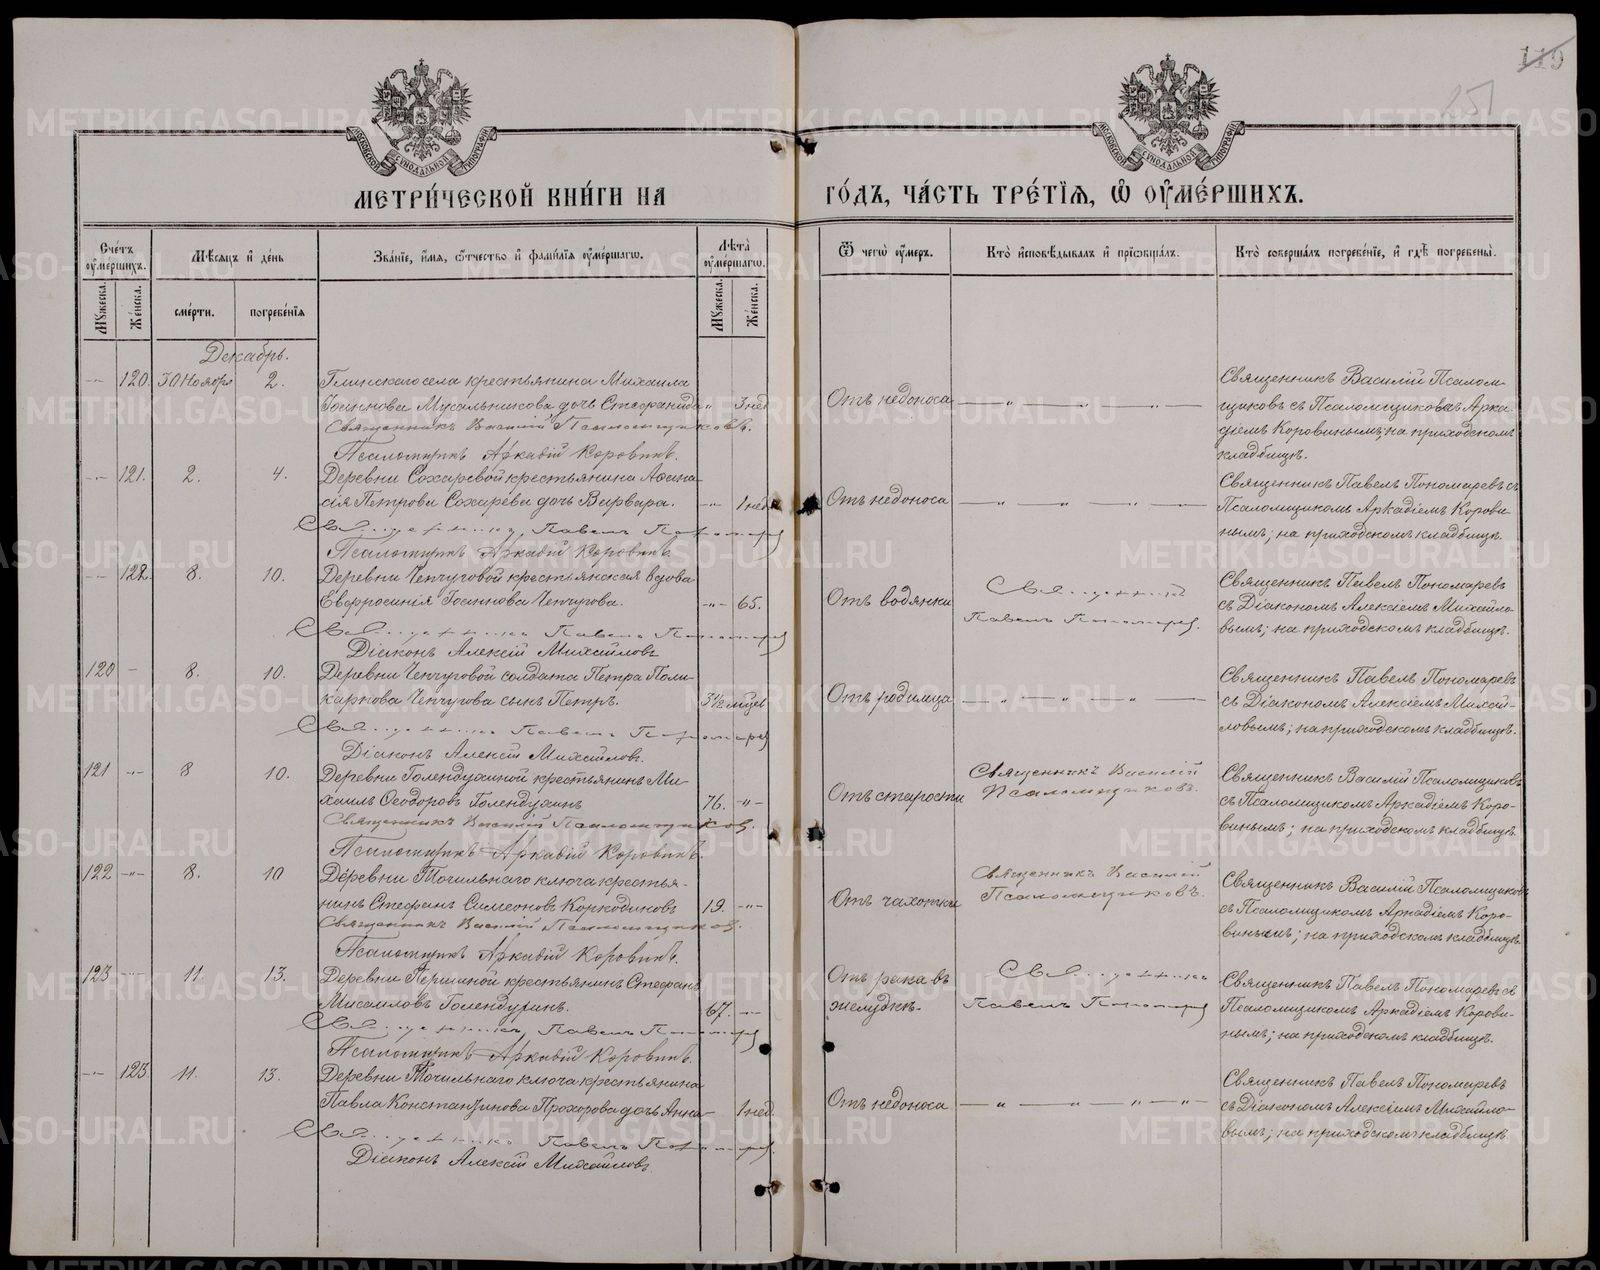 119
251
МОСКОВСКОЙ СѴНОДАЛЬНОЙ ТИПОГРАФІИ
МОСКОВСКОЙ СѴНОДАЛЬНОЙ ТИПОГРАФІИ
МЕТРИ́ЧЕСКОЙ КНИ́ГИ НА ГО́ДЪ, ЧА́СТЬ ТРЕ́ТІѦ, Ѡ ОУМЕ́РШИХЪ.
Сче́тъ оумершихъ.
Мѣ́сяцъ и де́нь
Зва́ніе, и́мя, ѻтчество и фами́лія оумершагѡ.
Лѣта̀ оумершагѡ.
Ѿ чегѡ̀ оумеръ.
Кто̀ исповѣ́дывалъ и прїѡбща́лъ.
Кто̀ соверша́лъ погребе́ніе, и гдѣ̀ погребены̀.
Мужеска. Же́нска.
сме́рти. погребе́нія
Мужеска. Же́нска.
Декабрь.
-"- 120. 30 Ноября 2.
Глинскаго села крестьянина Михаила
Іоаннова Мусальникова дочь Стефанида " 3 нед.
Священникъ Василій Псаломщиковъ.
Псаломщикъ Аркадій Коровинъ.
Отъ недоноса
— " — " —
Священникъ Василій Псалом-
щиковъ съ Псаломщикомъ Арка-
діемъ Коровинымъ; на приходскомъ
кладбищѣ.
-"- 121. 2. 4.
Деревни Сохаревой крестьянина Афана-
сія Петрова Сохарева дочь Варвара. -"- 1 нед.
Священникъ Павелъ Пономаревъ
Псаломщикъ Аркадій Коровинъ.
Отъ недоноса
— " — " — " —
Священникъ Павелъ Пономаревъ съ
Псаломщикомъ Аркадіемъ Корови-
нымъ; на приходскомъ кладбищѣ.
-"- 122. 8. 10.
Деревни Чепчуговой крестьянская вдова
Евфросинія Іоаннова Чепчугова. -"- 65.
Священникъ Павелъ Пономаревъ
Діаконъ Алексій Михайловъ
Отъ водянки
Священникъ
Павелъ Пономаревъ.
Священникъ Павелъ Пономаревъ
съ Діакономъ Алексіемъ Михайло-
вымъ; на приходскомъ кладбищѣ.
120 — 8. 10.
Деревни Чепчуговой солдата Петра Поли-
карпова Чепчугова сынъ Петръ. 3½ мѣсц.
Священникъ Павелъ Пономаревъ
Діаконъ Алексій Михайловъ.
Отъ родимца
— " — " — " —
Священникъ Павелъ Пономаревъ
съ Діакономъ Алексіемъ Михай-
ловымъ; на приходскомъ кладбищѣ.
121 -"- 8 10.
Деревни Голендухиной крестьянинъ Ми-
хаилъ Ѳеодоровъ Голендухинъ 76. -"-
Священникъ Василій Псаломщиковъ.
Псаломщикъ Аркадій Коровинъ.
Отъ старости
Священникъ Василій
Псаломщиковъ.
Священникъ Василій Псаломщиковъ
съ Псаломщикомъ Аркадіемъ Коро-
винымъ; на приходскомъ кладбищѣ.
122 -"- 8. 10
Деревни Точильнаго ключа крестья-
нинъ Стефанъ Симеоновъ Коркодиновъ 19. -"-
Священникъ Василій Псаломщиковъ.
Псаломщикъ Аркадій Коровинъ.
Отъ чахотки
Священникъ Василій
Псаломщиковъ.
Священникъ Василій Псаломщиковъ
съ Псаломщикомъ Аркадіемъ Коро-
винымъ; на приходскомъ кладбищѣ.
123 -"- 11. 13.
Деревни Першиной крестьянинъ Стефанъ
Михаиловъ Голендухинъ. 67. -"-
Священникъ Павелъ Пономаревъ
Псаломщикъ Аркадій Коровинъ.
Отъ рака въ
желудкѣ.
Священникъ
Павелъ Пономаревъ
Священникъ Павелъ Пономаревъ съ
Псаломщикомъ Аркадіемъ Корови-
нымъ; на приходскомъ кладбищѣ.
-"- 123. 11. 13.
Деревни Точильнаго ключа крестьянина
Павла Константинова Прохорова дочь Анна — 1 нед.
Священникъ Павелъ Пономаревъ
Діаконъ Алексій Михайловъ.
Отъ недоноса
— " — " — " — " —
Священникъ Павелъ Пономаревъ
съ Діакономъ Алексіемъ Михайло-
вымъ; на приходскомъ кладбищѣ.
METRIKI.GASO-URAL.RU